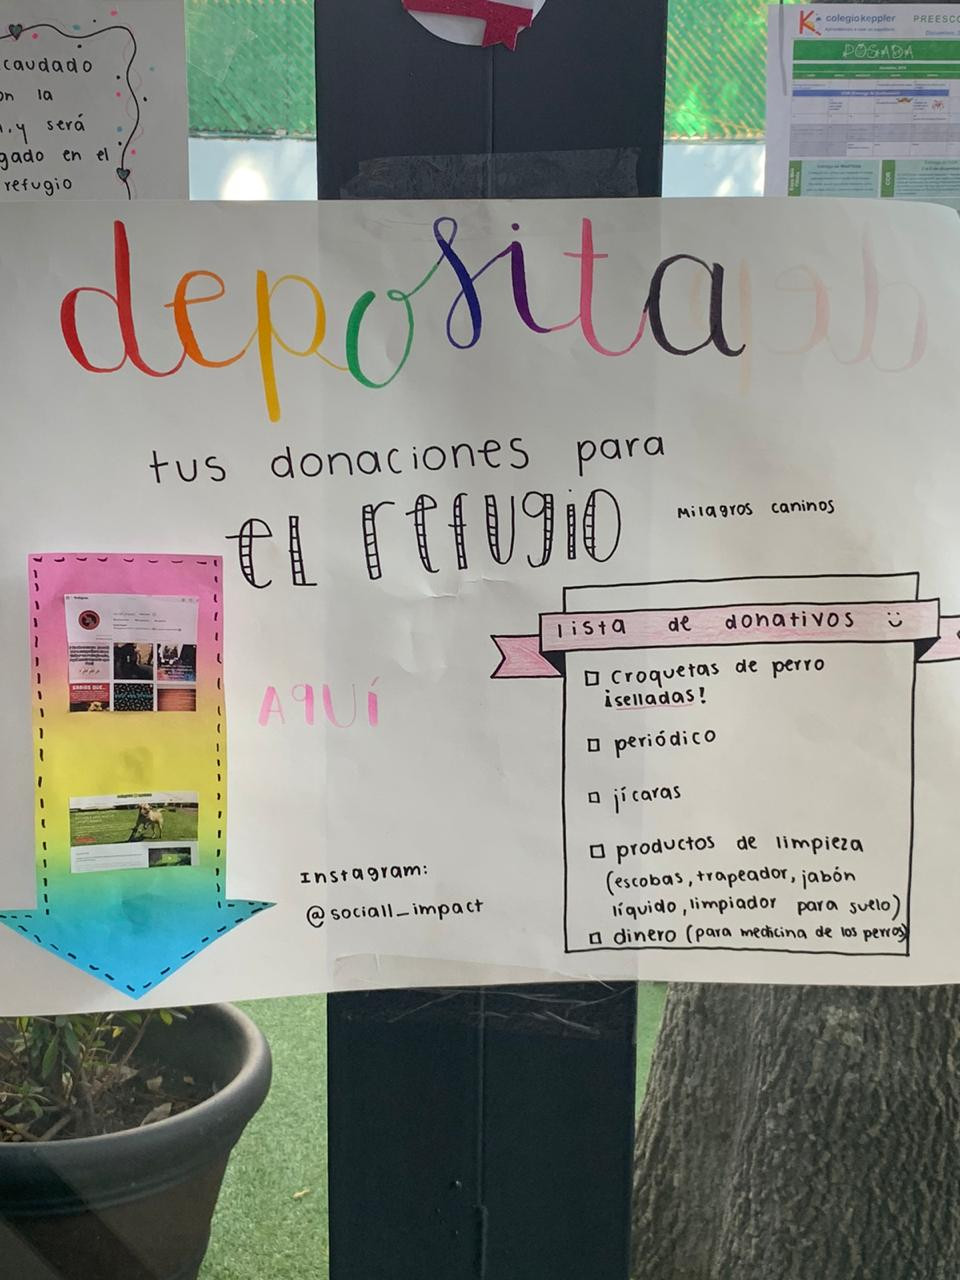 caudado
on la
y será
gado en el
refugio
colegiokeppler
PREESCO
POSADA
deposita
tus donaciones para
el refugio
Milagros caninos
AQUÍ
lista de donativos
croquetas de perro
¡selladas!
periódico
jícaras
productos de limpieza
(escobas, trapeador, jabón
líquido, limpiador para suelo)
dinero (para medicina de los perros)
Instagram:
@sociall_impact